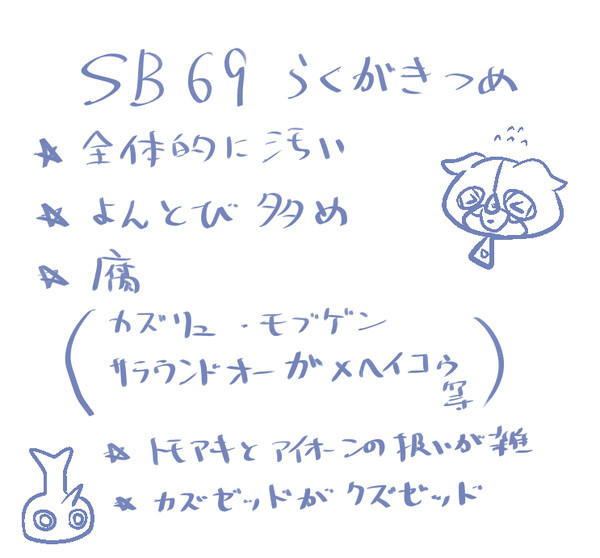 SB69 らくがきつめ
★ 全体的に汚い
★ よんとび多め
★ 腐
(カズリュ・モブゲン
サラウンドオーガ×ヘイコウ
等)
★ トモアキとアイオーンの扱いが雑
★ カズゼッドがクズゼッド